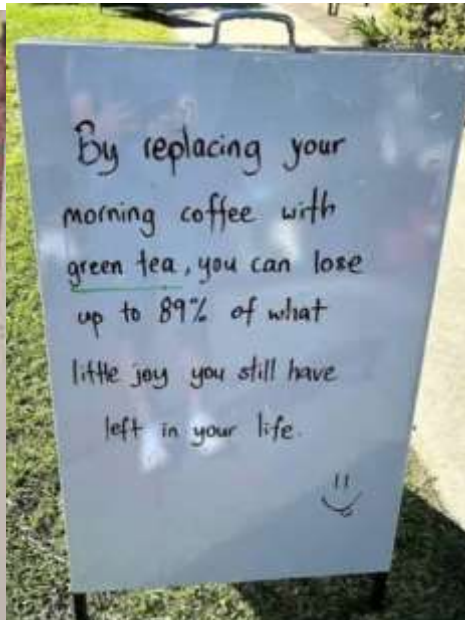 By replacing your
morning coffee with
green tea, you can lose
up to 89% of what
little joy you still have
left in your life.